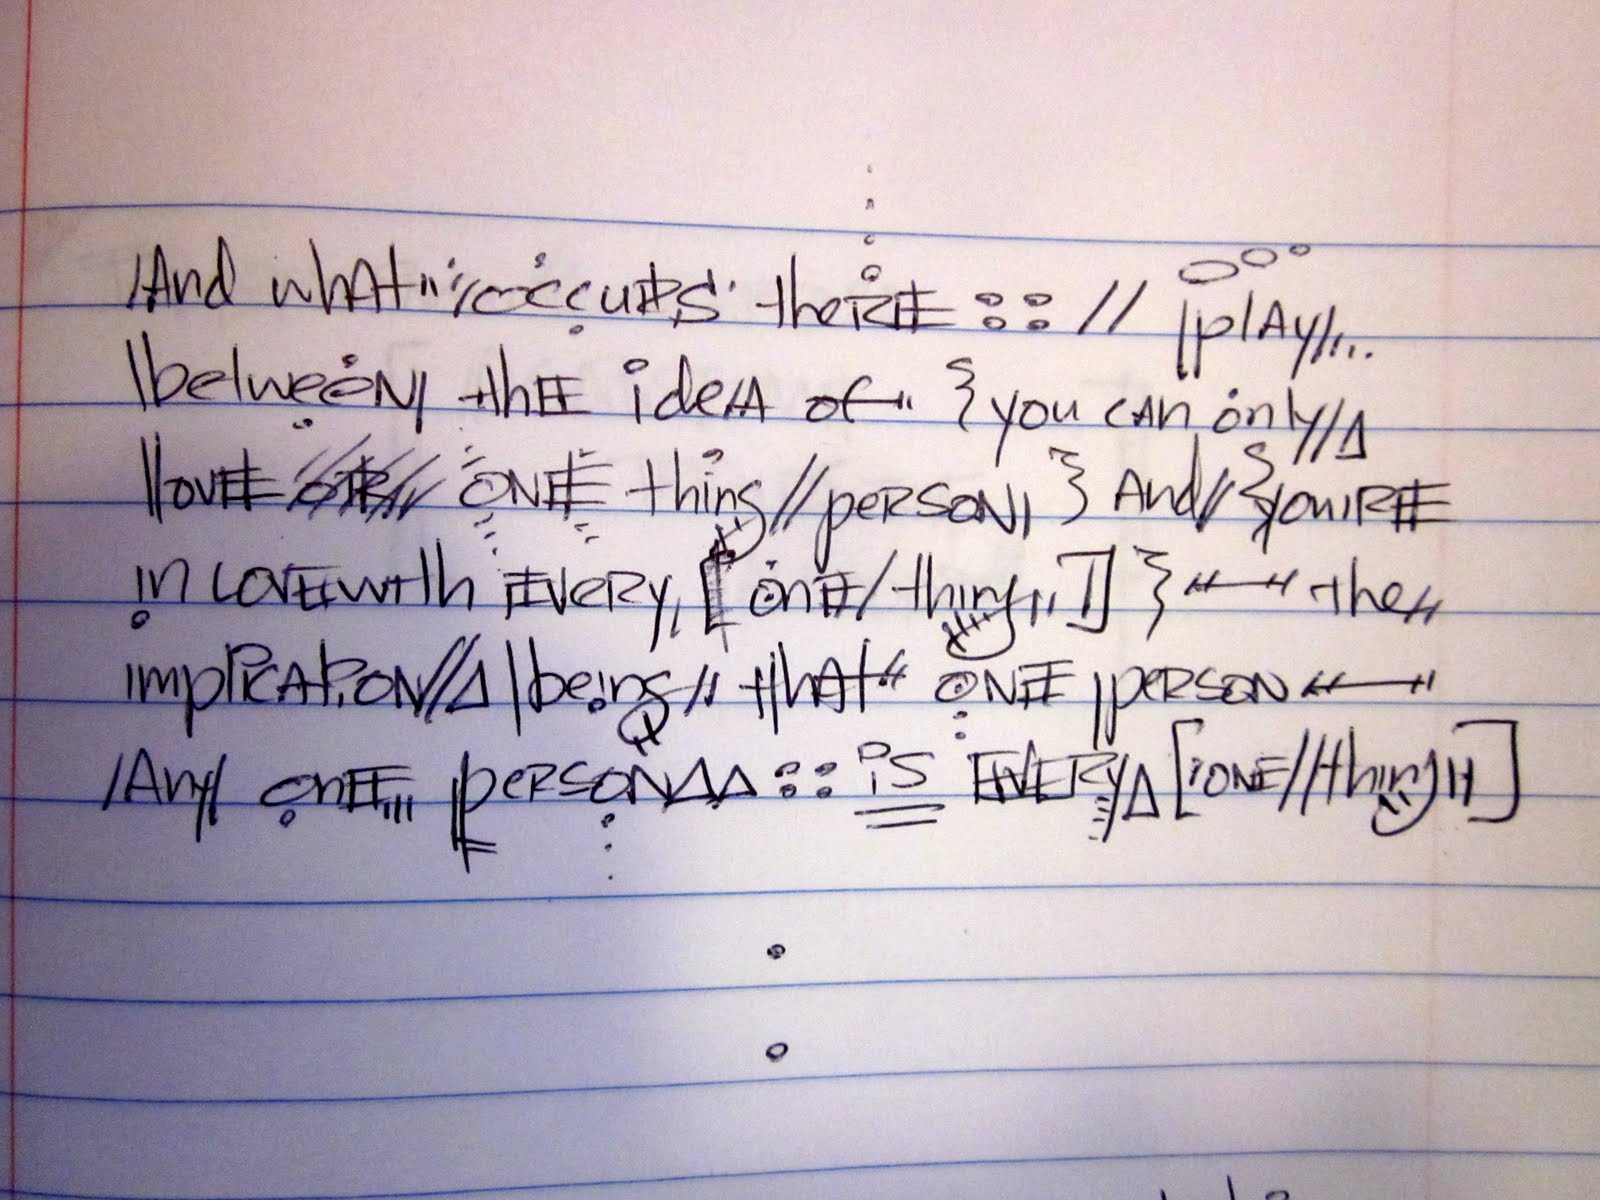 And what occurs there :: // play...
between the idea of {you can only
love ONE thing//person} And//{you'RE
in LOVE with EVERY, [onE/thing,,]} the
implication// being that ONE person
Any onE person :: is EVERY [ONE//thing]